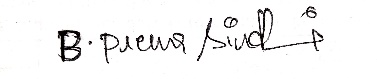 B. prema sindhi